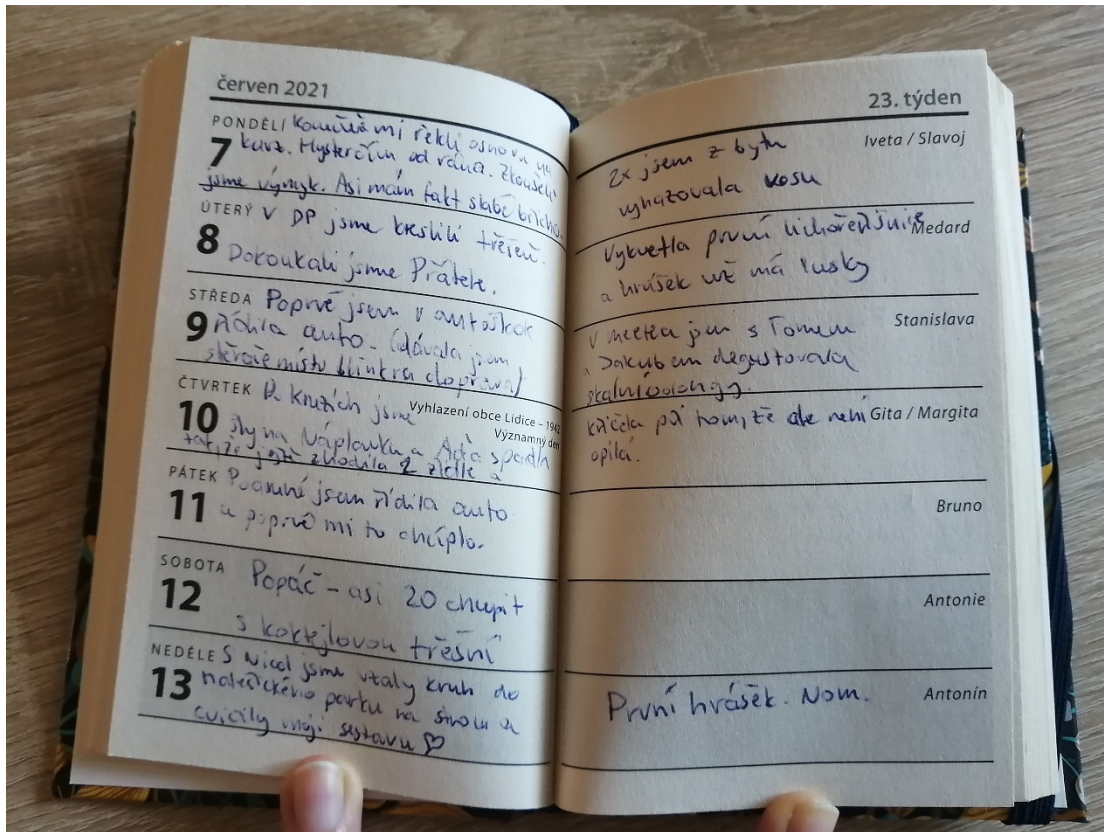 červen 2021
PONDĚLÍ
7
mi řekli osnovu na
kurz. od rána. Zkoušeli
jsme výmyk. Asi mám fakt slabé břicho.
ÚTERÝ V DP jsme kreslili třešeň.
8
Dokoukali jsme Přátele.
STŘEDA Poprvé jsem v autoškole
9
řídila auto. (dávala jsem
stěrače místo blinkra doprava)
ČTVRTEK Po kruzích jsme
Vyhlazení obce Lidice – 1942
Významný den
10
šly na Náplavku a Áďa spadla
takže ještě z kola a
PÁTEK Podruhé jsem řídila auto
11
a poprvé mi to chcíplo.
SOBOTA
12
Popáč – asi 20 chupit
s koktejlovou třešní
NEDĚLE S Nicol jsme vzaly kruh do
13
parku na strom a
cvičily moji sestavu ♡
23. týden
Iveta / Slavoj
2x jsem z bytu
vyhazovala vosu
Medard
Vykvetla první lichořeřišnice
a hrášek už má lusky
Stanislava
V meetea jsem s Tomem
a Jakubem degustovala
skalní oolongy.
Gita / Margita
křičela při tom, že ale není
opilá.
Bruno
Antonie
Antonín
První hrášek. Nom.